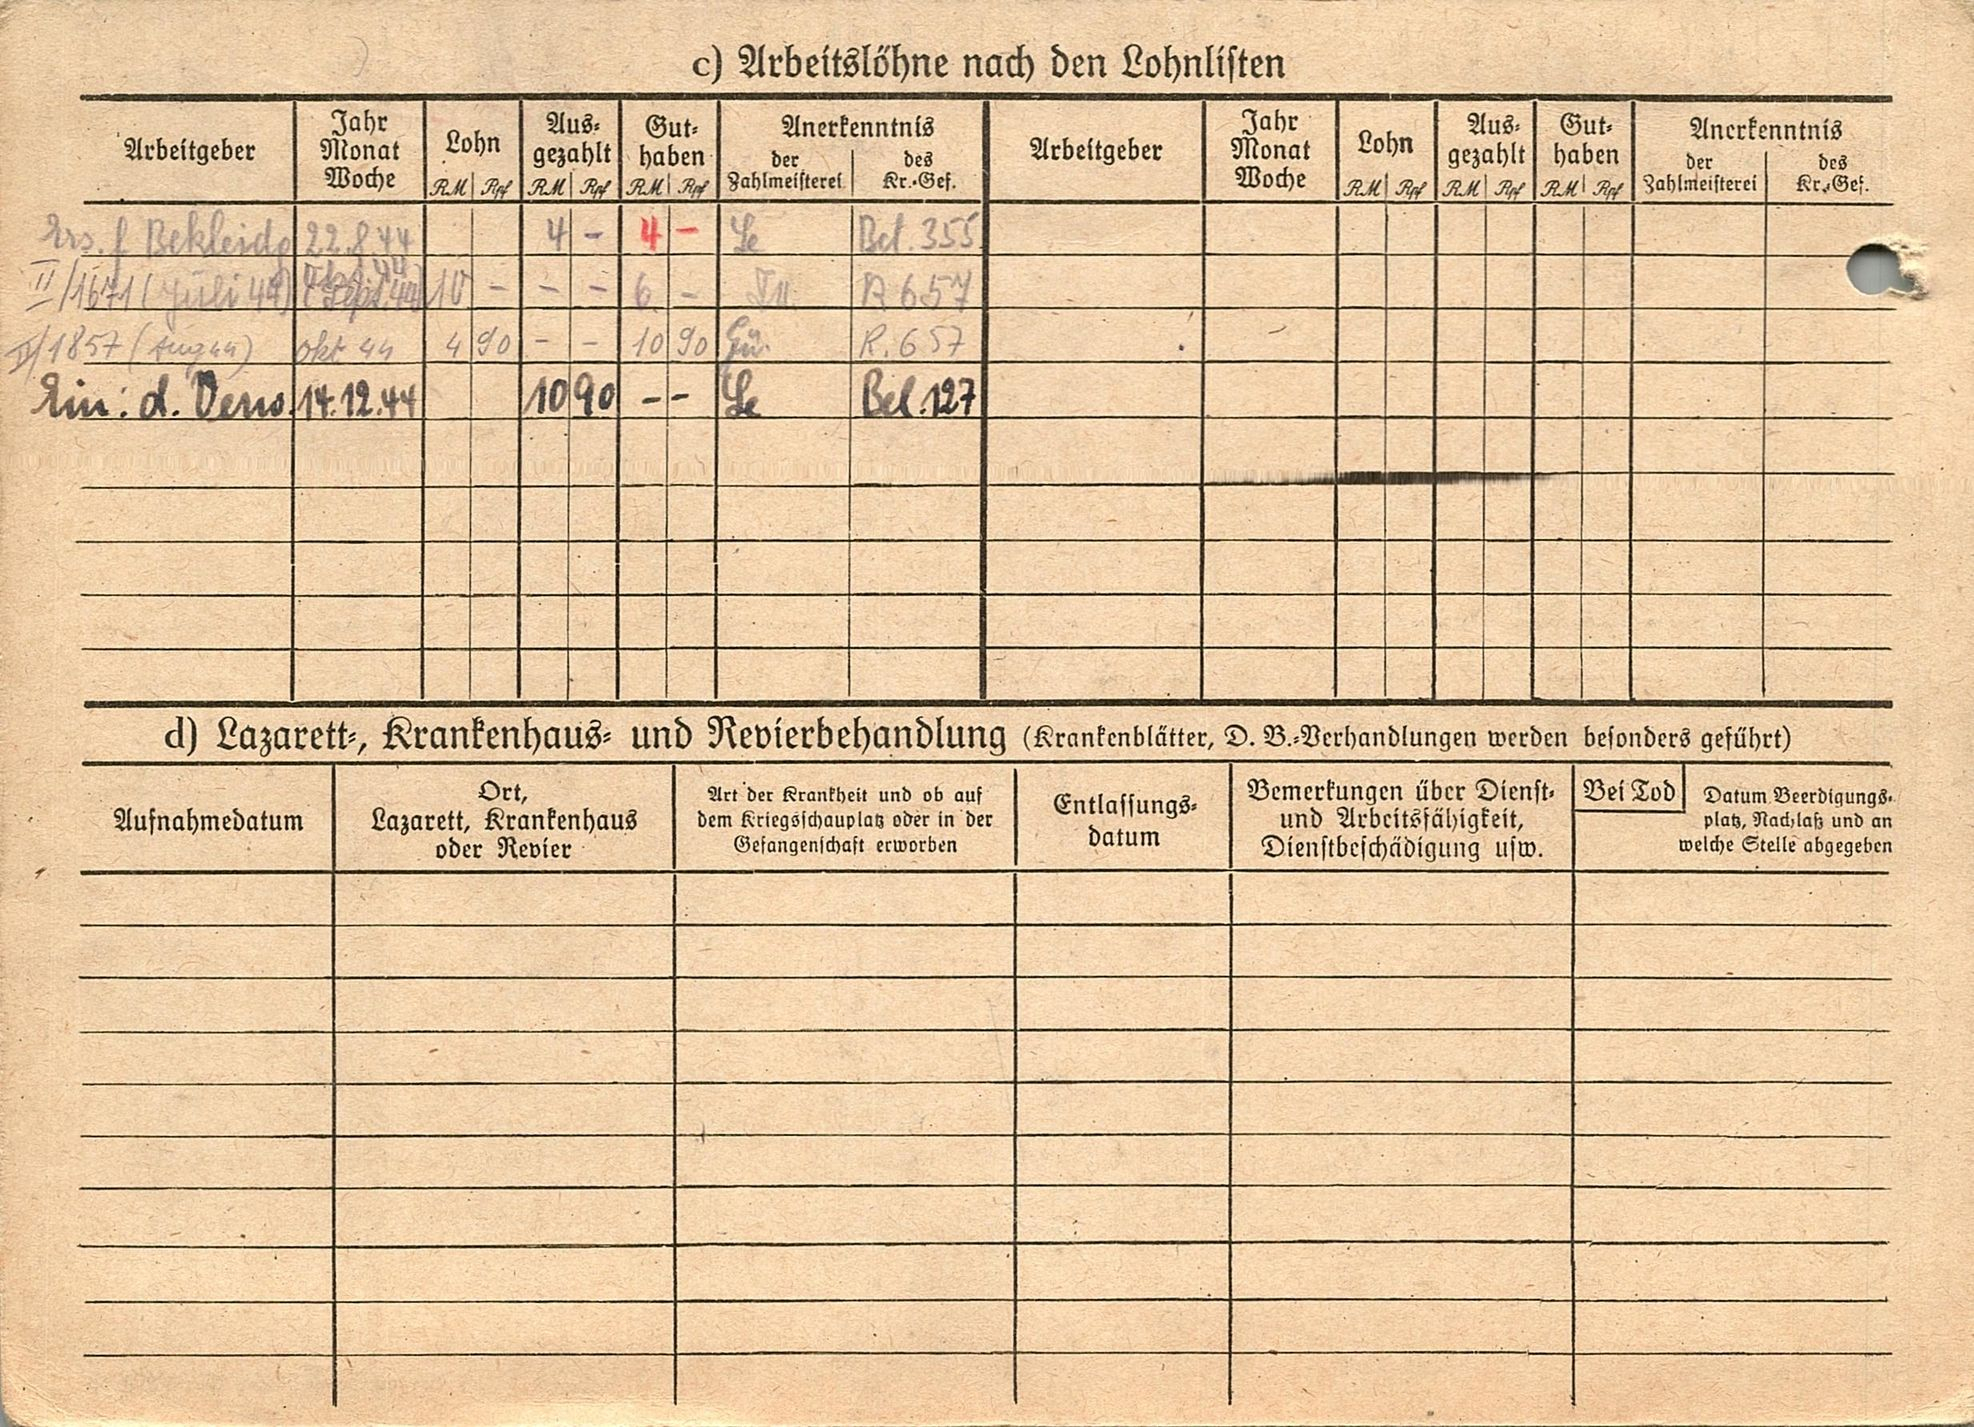 c) Arbeitslöhne nach den Lohnlisten
Arbeitgeber Jahr Monat Woche Lohn RM Rpf Aus-gezahlt RM Rpf Gut-haben RM Rpf Anerkenntnis der Zahlmeisterei des Kr.-Gef. Arbeitgeber Jahr Monat Woche Lohn RM Rpf Aus-gezahlt RM Rpf Gut-haben RM Rpf Anerkenntnis der Zahlmeisterei des Kr.-Gef.
Ers. f Bekleidg 22.8.44 4 - 4 - Le Bel. 355
II/1671 (Juli 44) (Sept. 44) 10 - - - 6 - R 657
II/1857 (Aug 44) Okt 44 4 90 - - 10 90 Gü. R. 657
14.12.44 10 90 - - Le Bel. 127
d) Lazarett-, Krankenhaus- und Revierbehandlung (Krankenblätter, D. B.-Verhandlungen werden besonders geführt)
Aufnahmedatum
Ort,
Lazarett, Krankenhaus
oder Revier
Art der Krankheit und ob auf
dem Kriegsschauplatz oder in der
Gefangenschaft erworben
Entlassungs-
datum
Bemerkungen über Dienst-
und Arbeitsfähigkeit,
Dienstbeschädigung usw.
Bei Tod
Datum Beerdigungs-
platz, Nachlaß und an
welche Stelle abgegeben